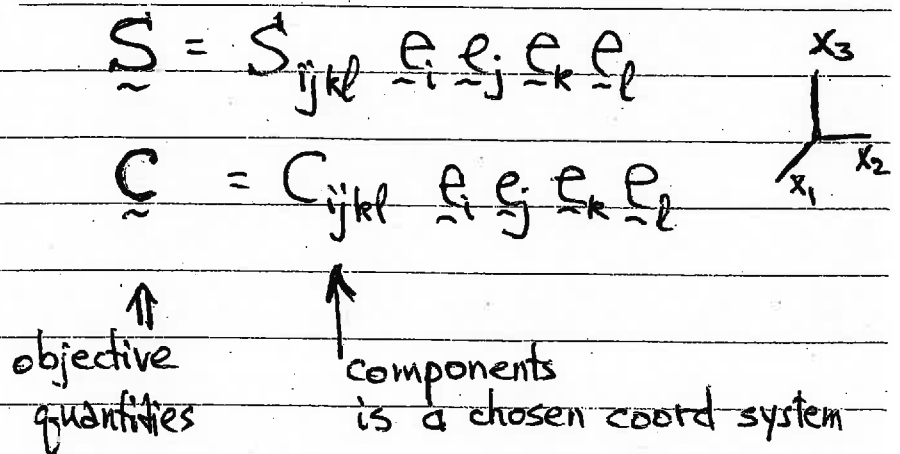 S̰ = S_ijkl ḛ_i ḛ_j ḛ_k ḛ_l
x₃
x₂
x₁
C̰ = C_ijkl ḛ_i ḛ_j ḛ_k ḛ_l
⇑ ↑
objective
quantities
components
is a chosen coord system